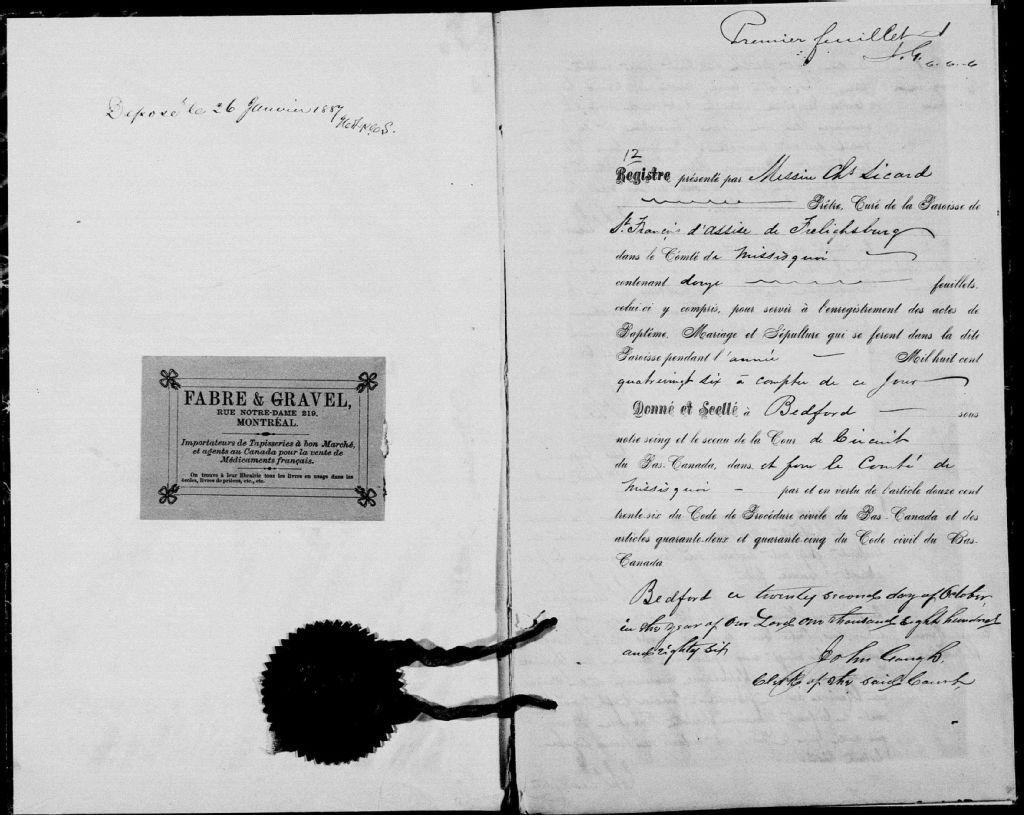 Deposé le 26 Janvier 1887
FABRE & GRAVEL,
RUE NOTRE-DAME 219.
MONTRÉAL.
Importateurs de Tapisseries à bon Marché,
et agents au Canada pour la vente de
Médicaments français.
On trouve à leur librairie tous les livres en usage dans les
écoles, livres de prières, etc., etc.
Premier feuillet
J. G.
12
Registre présenté par Messire Chs Sicard
Prêtre, Curé de la Paroisse de
St. François d'Assise de Frelighsburg
dans le Comté de Missisquoi
contenant douze feuillets,
celui-ci y compris, pour servir à l'enregistrement des actes de
Baptême, Mariage et Sépulture qui se feront dans la dite
Paroisse pendant l'année Mil huit cent
quatrevingt six à compter de ce jour
Donné et Scellé à Bedford sous
notre seing et le sceau de la Cour de Circuit
du Bas-Canada, dans et pour le Comté de
Missisquoi par et en vertu de l'article douze cent
trente-six du Code de Procédure civile du Bas-Canada et des
articles quarante-deux et quarante-cinq du Code civil du Bas-
Canada
Bedford twenty second day of October
in the year of Our Lord one thousand Eight hundred
and eighty six
John Gough.
Clerk of the said Court,